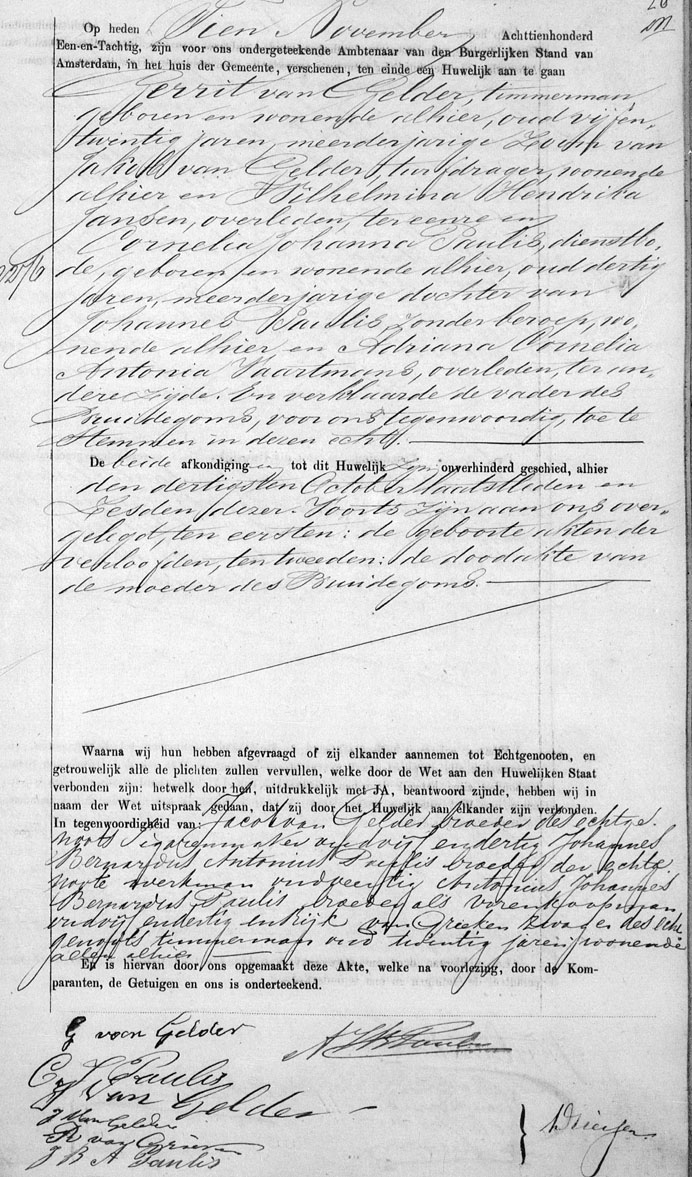 Op heden Tien November Achttienhonderd
Een-en-Tachtig, zijn voor ons ondergeteekende Ambtenaar van den Burgerlijken Stand van
Amsterdam, in het huis der Gemeente, verschenen, ten einde een Huwelijk aan te gaan
Gerrit van Gelder, timmerman
geboren en wonende alhier, oud vijfen
twintig jaren, meerderjarige Zoon van
Jakob van Gelder, turfdrager, wonende
alhier en Wilhelmina Hendrika
Jansen, overleden, ter eenre en
Cornelia Johanna Paulis, dienstbo-
de, geboren en wonende alhier, oud dertig
jaren, meerderjarige dochter van
Johannes Paulis, zonder beroep, wo-
nende alhier en Adriana Cornelia
Antonia Vaartmans, overleden, ter an-
dere zijde. En verklaarde de vader des
Bruidegoms, voor ons tegenwoordig, toe te
stemmen in dezen echt.
De beide afkondigingen tot dit Huwelijk zijn onverhinderd geschied, alhier
den dertigsten October laatstleden en
Zesden dezer. Voorts zijn aan ons over-
gelegd, ten eersten: de geboorte akten der
verloofden, ten tweeden: de doodakte van
de moeder des Bruidegoms.
Waarna wij hun hebben afgevraagd of zij elkander aannemen tot Echtgenooten, en
getrouwelijk alle de plichten zullen vervullen, welke door de Wet aan den Huwelijken Staat
verbonden zijn: hetwelk door hen, uitdrukkelijk met JA, beantwoord zijnde, hebben wij in
naam der Wet uitspraak gedaan, dat zij door het Huwelijk aan elkander zijn verbonden.
In tegenwoordigheid van: Jacob van Gelder broeder des echtge-
noots sigarenmaker oud vijf en dertig Johannes
Bernardus Antonius Paulis broeder der echtge
noote werkman oud veertig Antonius Johannes
Bernardus Paulis broeder als voren koopman
oud vijf en dertig en Rijk van Grieken zwager des echt
genoots timmerman oud twintig jaren wonende
allen alhier
En is hiervan door ons opgemaakt deze Akte, welke na voorlezing, door de Kom-
paranten, de Getuigen en ons is onderteekend.
G van Gelder
AJB Paulis
C J Paulis
J Van Gelder
J Van Gelder
R van Grieken
J B A Paulis